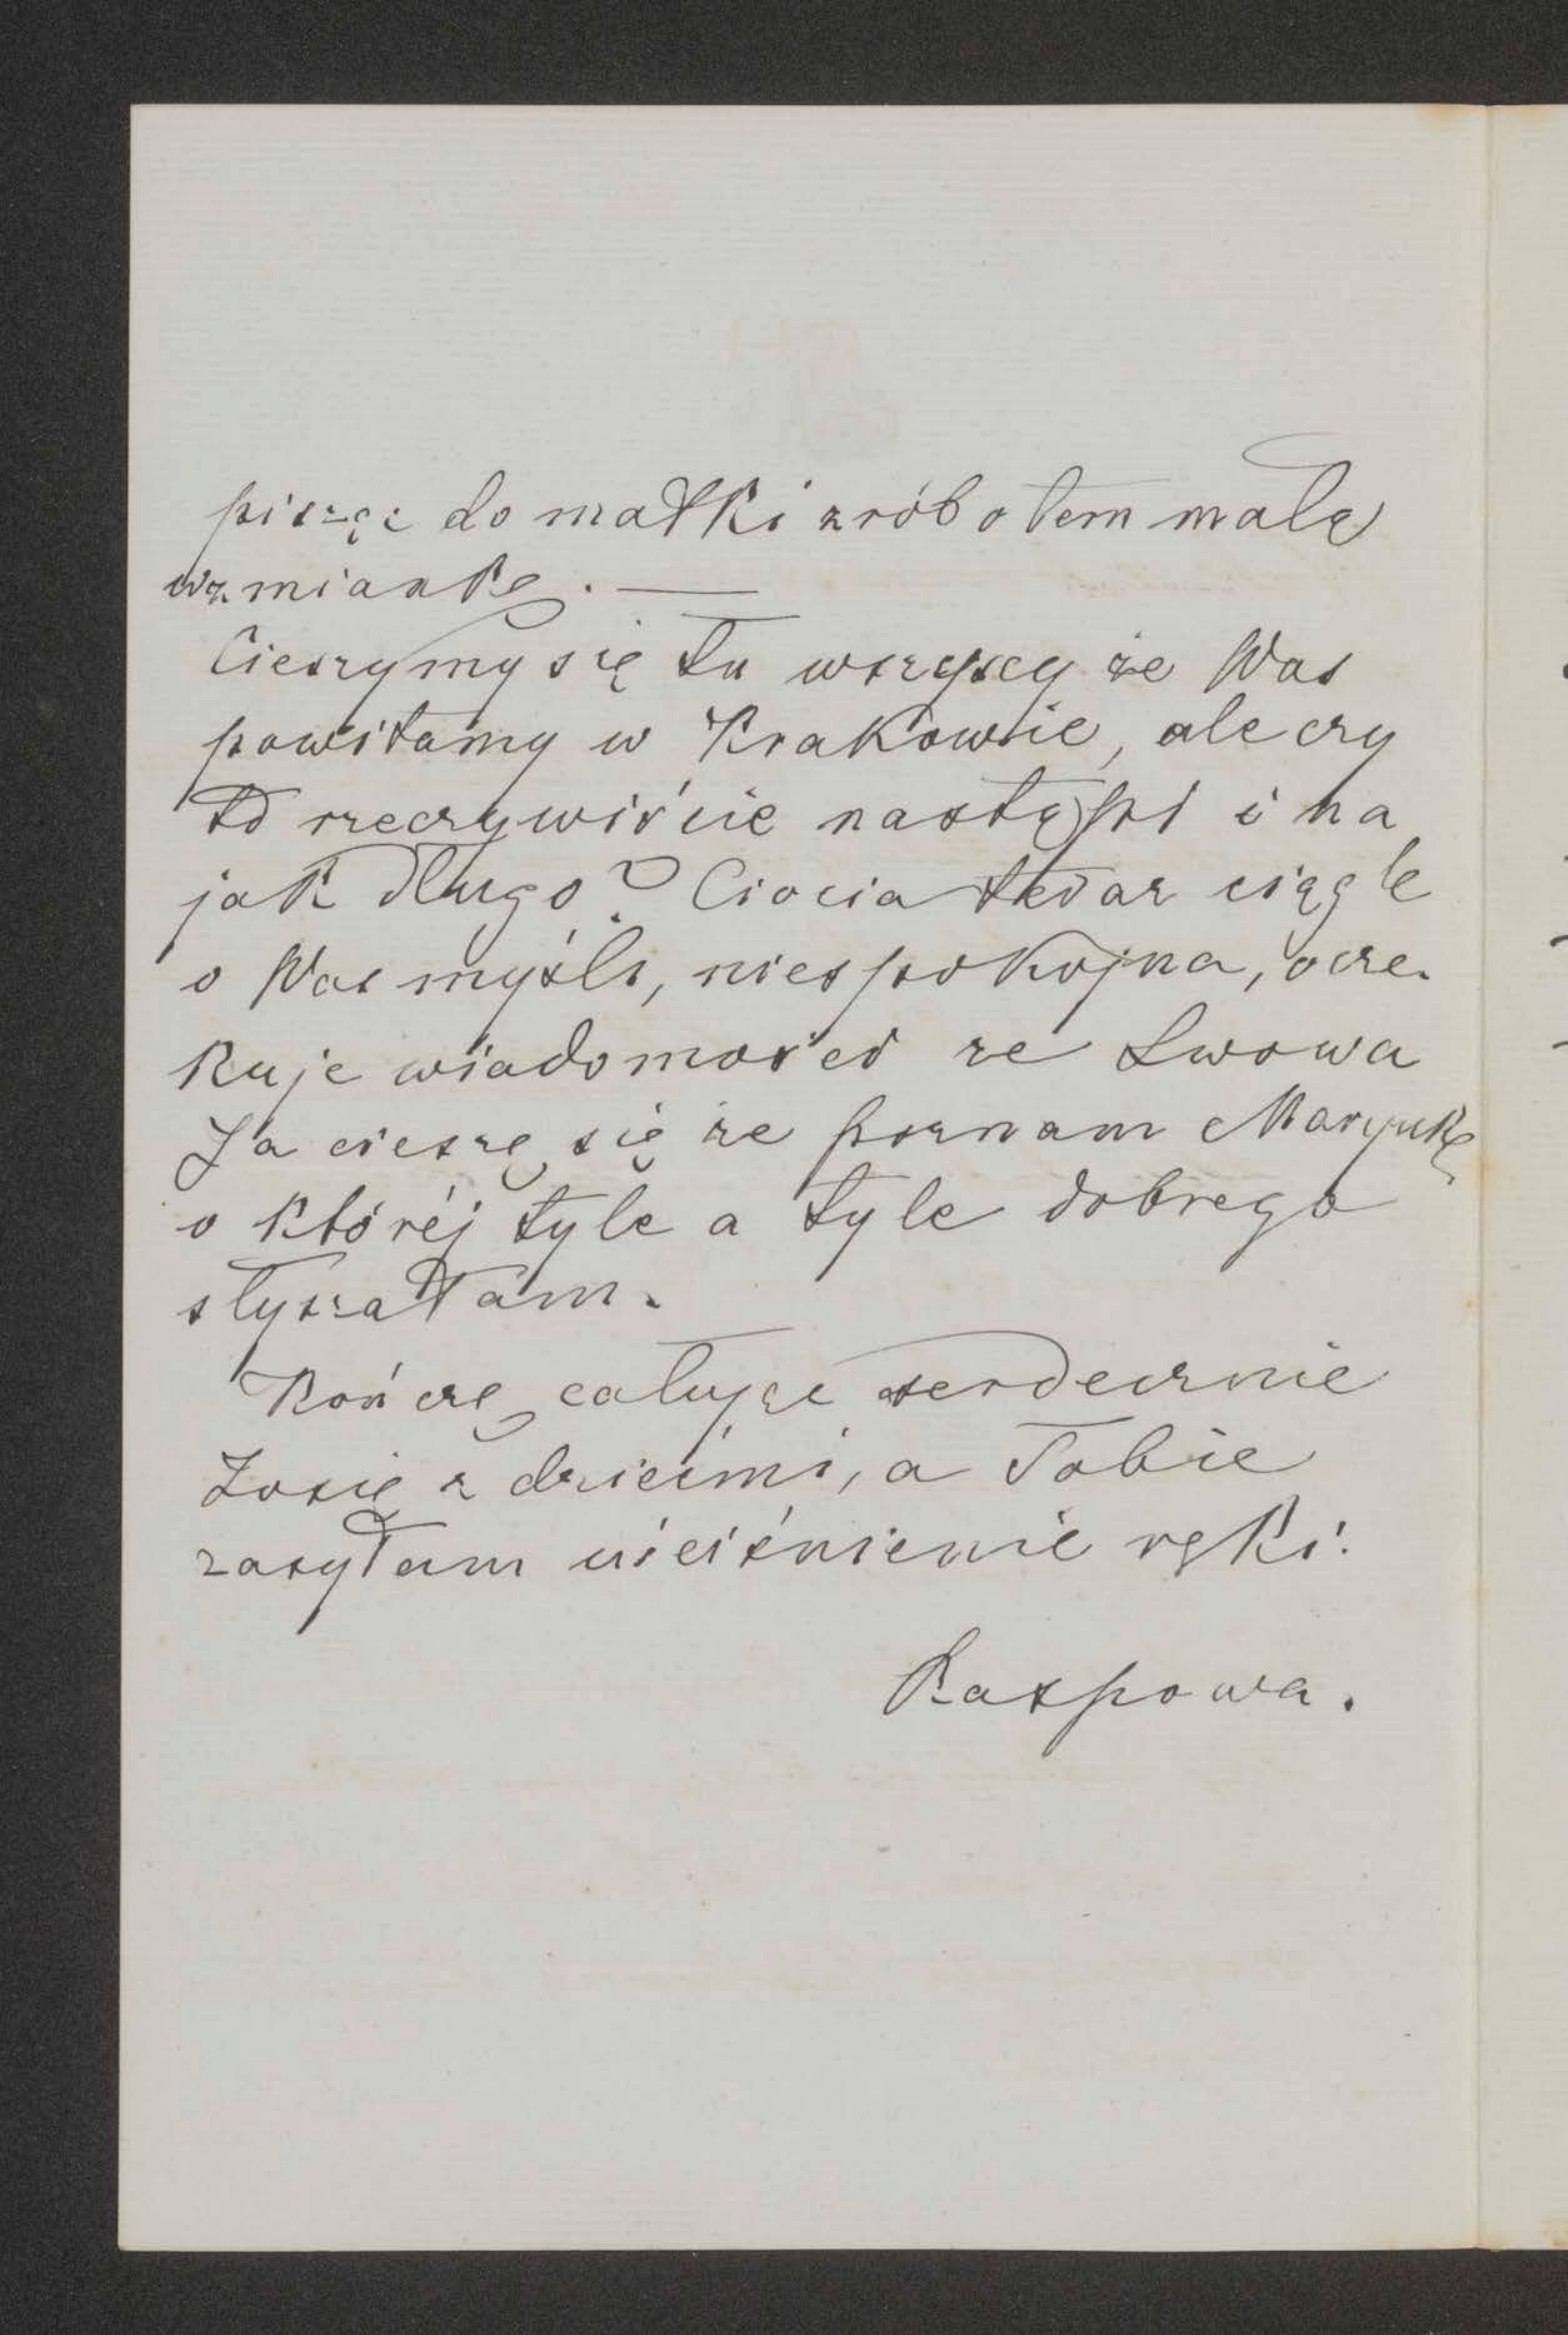 pisząc do matki zrób o tem małą
wzmiankę. —
Cieszymy się tu wszyscy że Was
powitamy w Krakowie, ale czy
to rzeczywiście nastąpi i na
jak długo? Ciocia teraz ciągle
o Was myśli, niespokojna, ocze-
kuje wiadomości ze Lwowa
Ja cieszę się że poznam Marynkę
o któréj tyle a tyle dobrego
słyszałam.
Kończę całując serdecznie
Zosię z dziećmi, a Tobie
zasyłam uściśnienie ręki.
Raspowa.